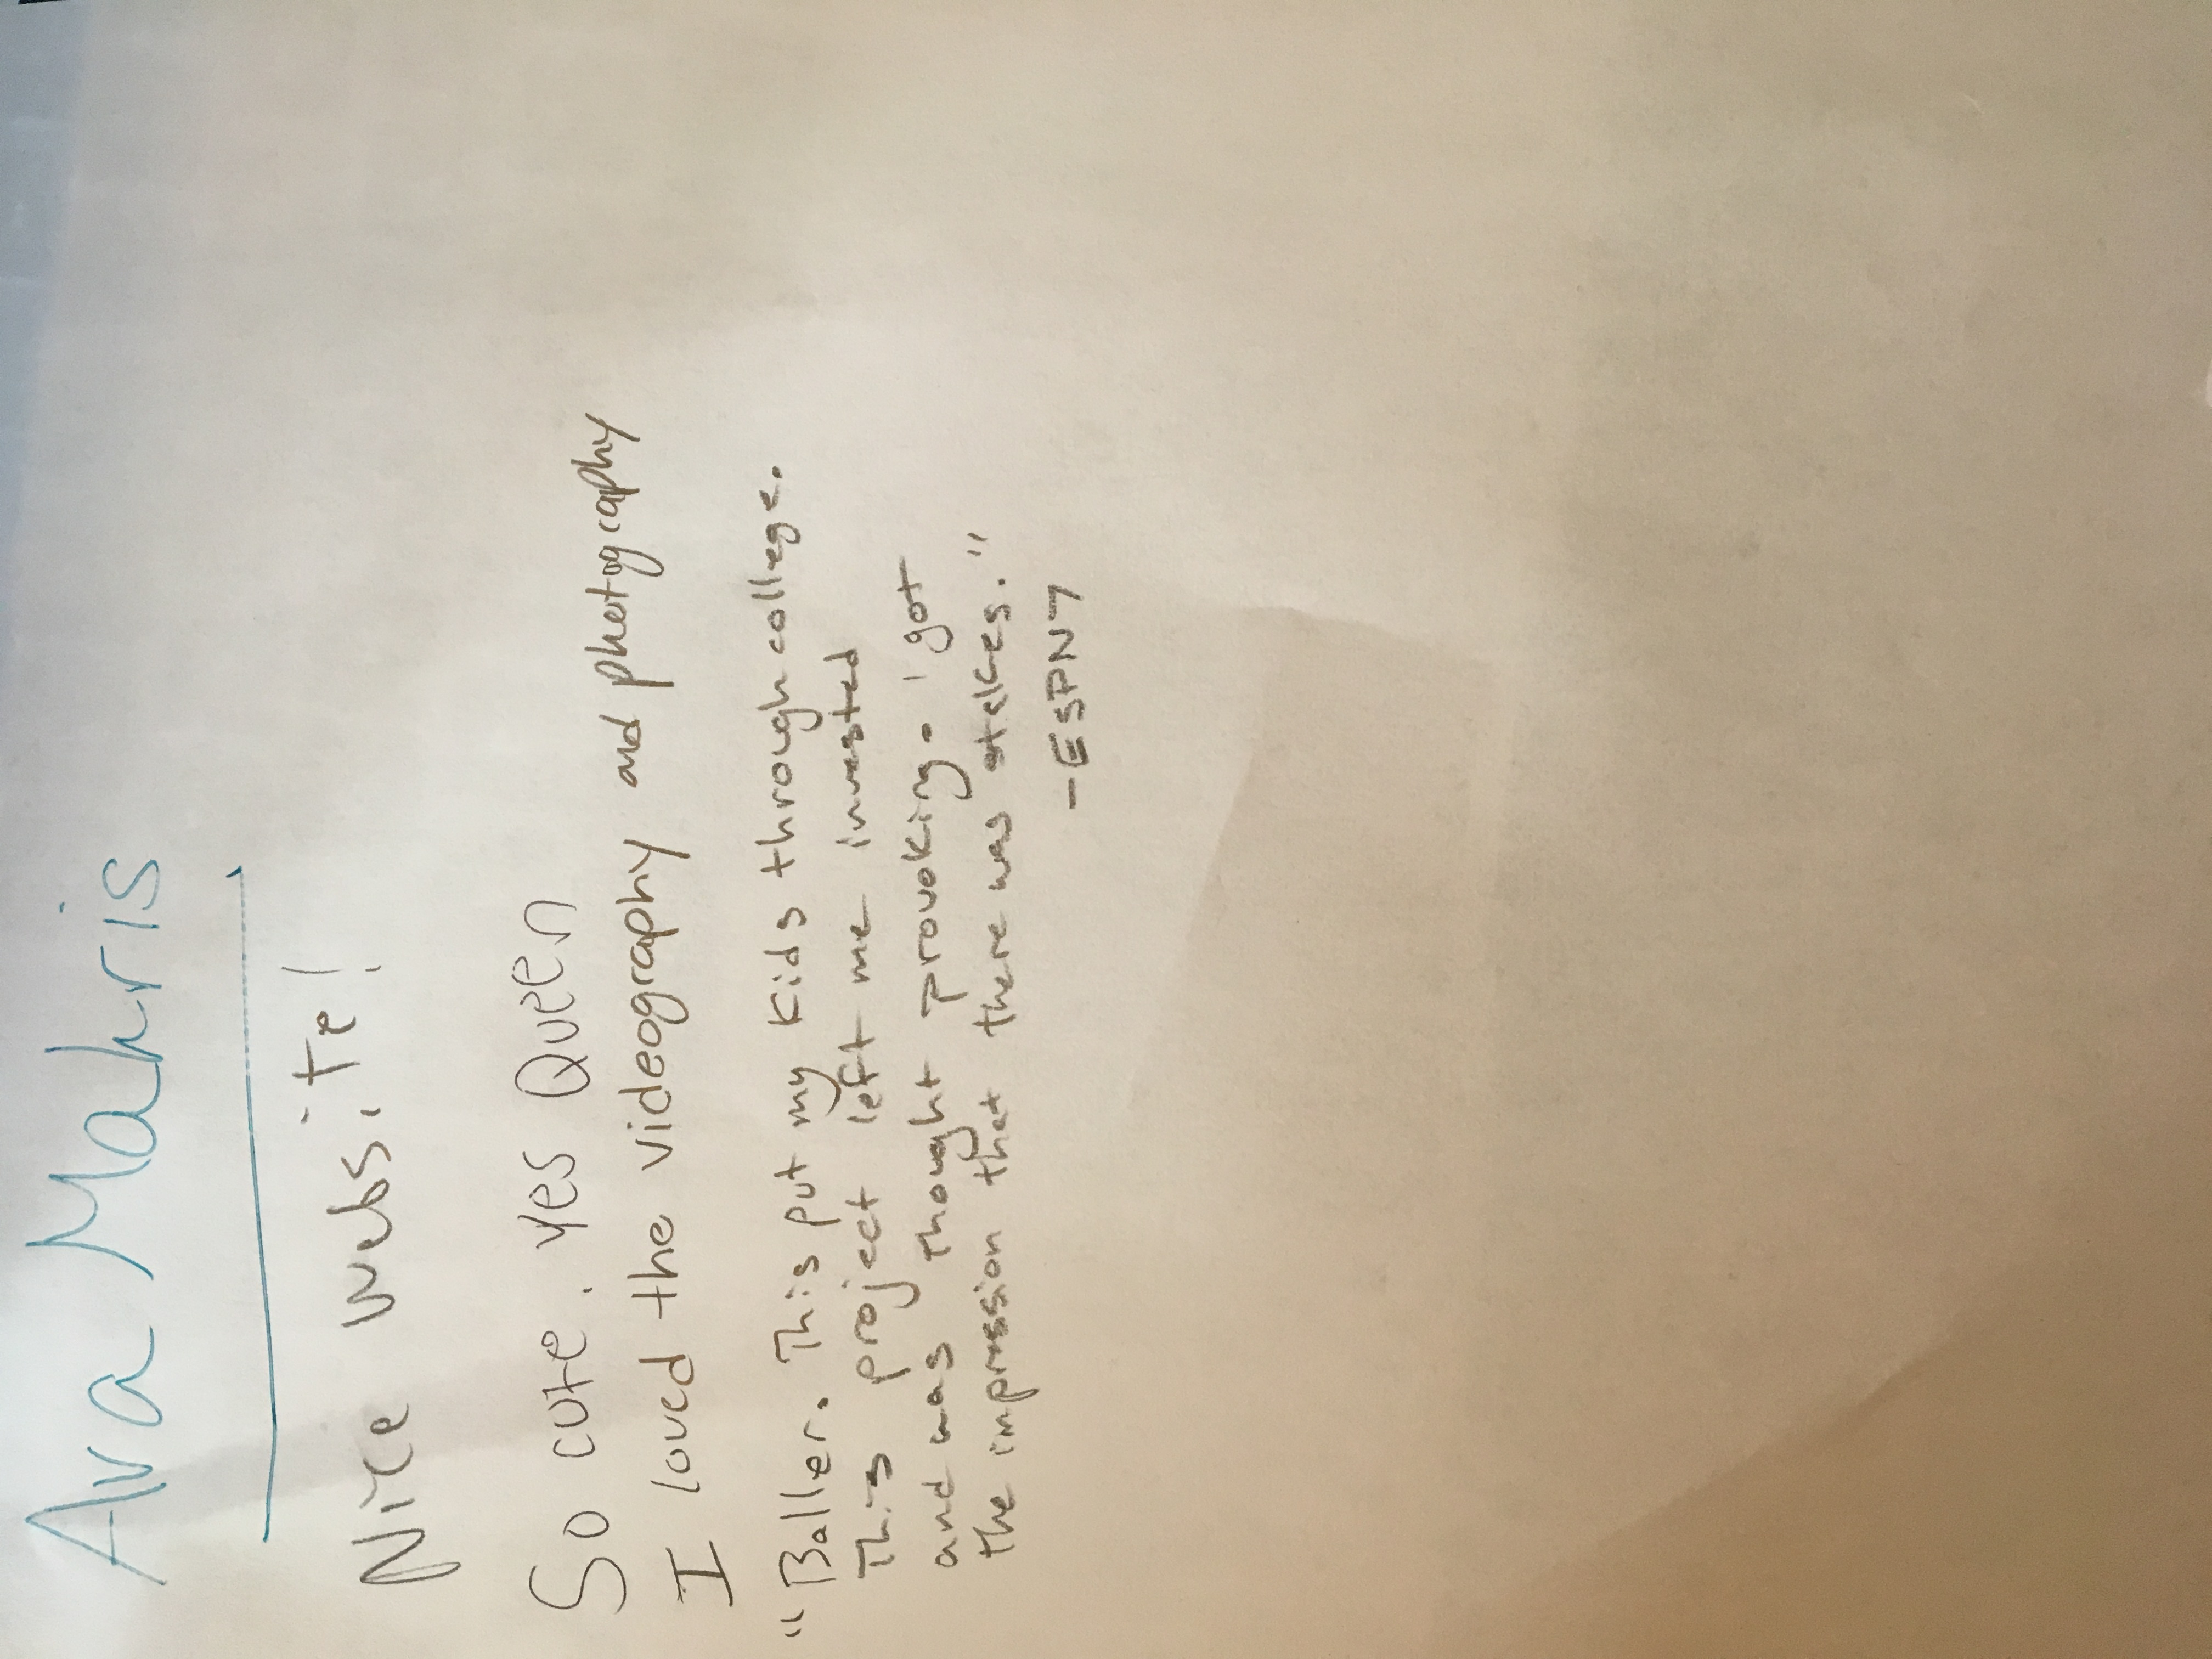 Ava Makris
Nice website!
So cute. yes Queen
I loved the videography and photography
"Baller. This put my kids through college.
This project left me invested
and was thought provoking. I got
the impression that there was stakes."
-ESPN7